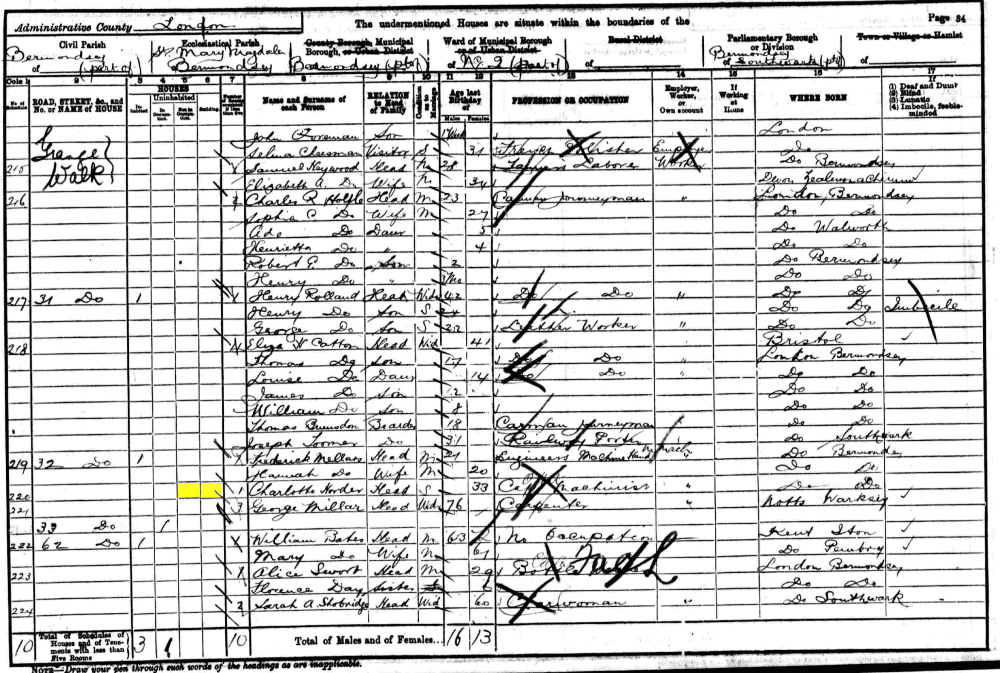 Administrative County London The undermentioned Houses are situate within the boundaries of the Page 34
Civil Parish Ecclesiastical Parish County Borough, Municipal Borough, or Urban District Ward of Municipal Borough or of Urban District Rural District Parliamentary Borough or Division Town or Village or Hamlet
of Bermondsey (part of) St Mary Magdale Bermondsey of Bermondsey (pt) of No 2 (part of) of of Bermondsey Southwark (pt) of
ROAD, STREET, &c., and No. or NAME of HOUSE HOUSES Uninhabited Name and Surname of each Person RELATION to Head of Family Condition as to Marriage Age last Birthday of PROFESSION OR OCCUPATION Employer, Worker, or Own account If Working at Home WHERE BORN If (1) Deaf and Dumb (2) Blind (3) Lunatic (4) Imbecile, feeble-minded
Males Females
John Foreman Son London
Grange Selina Chresman Visitor S 31 Do
215 Walk Samuel Heywood Head M 28 Laborer Worker Do Bermondsey
Elizabeth A. Do Wife M 34 Devon
216 Charles R Head M 23 Journeyman " London Bermondsey
Sophia C Do Wife M 27 Do Do
Ada Do Daur 5 Do Walworth
Henrietta Do " 4 Do Do
Robert F. Do Son 2 Do Bermondsey
Henry Do " Do Do
217 31 Do 1 Henry Rolland Head Widr 42 Do Do " Do Do
Henry Do Son S 24 Do Do Imbecile
George Do Son S 22 Leather Worker " Do Do
218 4 Eliza Catton Head Wid 41 Bristol
Thomas Do Son 17 Do Do " London Bermondsey
Louise Do Daur 14 Do Do Do
James Do Son 12 Do Do
William Do Son 8 Do Do
Thomas Brunsdon Boarder 18 Carman Journeyman Do Do
Joseph Toomer Do 31 Railway Porter Do Southwark
219 32 Do 1 Frederick Mellars Head M 21 Engineers Machine Hand Do Bermondsey
Hannah Do Wife M 20 Do Do
220 1 Charlotte Horder Head S 33 Machinist " Do Do
221 3 George Millar Head Widr 76 Carpenter " Notts
33 Do 1
222 62 Do 1 William Bates Head M 63 No Occupation Kent
Mary Do Wife M 61 Do
223 Alice Head M 29 London Bermondsey
Florence Day Sister Do Do
224 2 Sarah A. Head Wid 60 Charwoman " Do Southwark
10 Total of Schedules of Houses and of Tenements with less than Five Rooms 3 1 10 Total of Males and of Females... 16 13
NOTE—Draw your pen through such words of the headings as are inapplicable.